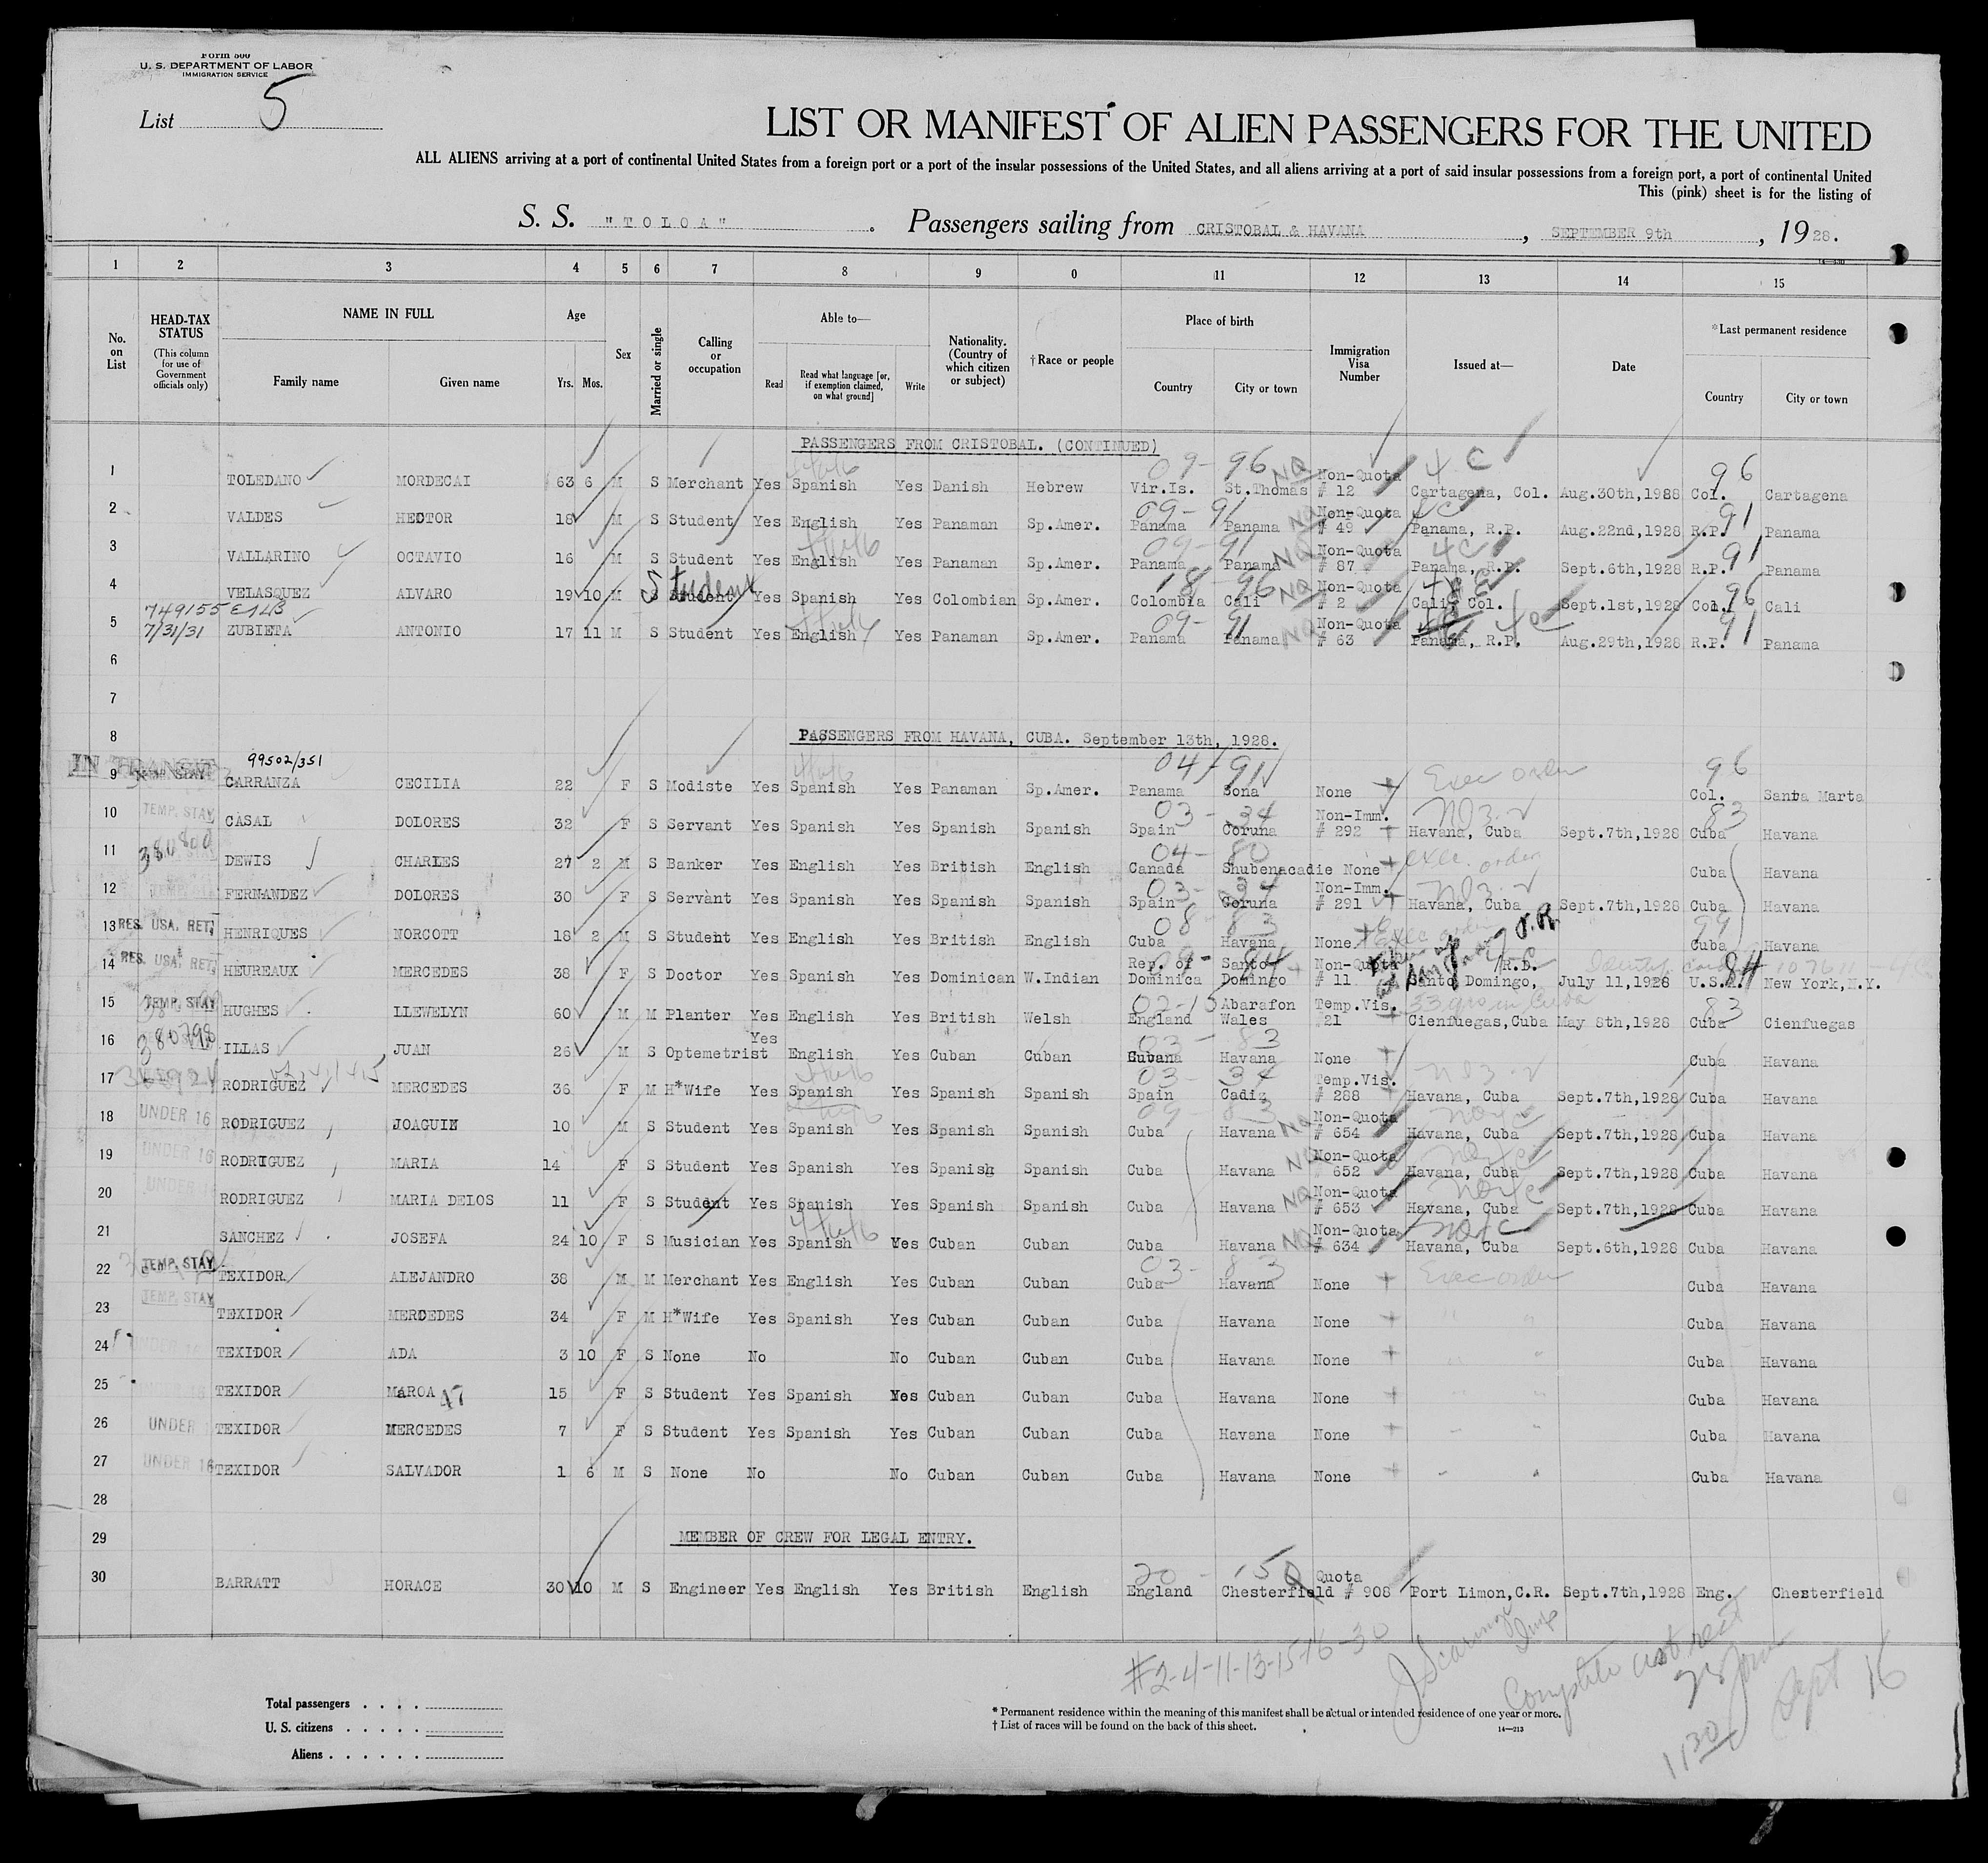 Form 500
U. S. DEPARTMENT OF LABOR
IMMIGRATION SERVICE
List 5
LIST OR MANIFEST OF ALIEN PASSENGERS FOR THE UNITED
ALL ALIENS arriving at a port of continental United States from a foreign port or a port of the insular possessions of the United States, and all aliens arriving at a port of said insular possessions from a foreign port, a port of continental United
This (pink) sheet is for the listing of
S. S. "TOLOA". Passengers sailing from CRISTOBAL & HAVANA, SEPTEMBER 9th, 1928.
1 2 3 4 5 6 7 8 9 0 11 12 13 14 15
No. on List
HEAD-TAX STATUS (This column for use of Government officials only)
NAME IN FULL Family name Given name
Age Yrs. Mos.
Sex
Married or single
Calling or occupation
Able to— Read Read what language [or, if exemption claimed, on what ground] Write
Nationality. (Country of which citizen or subject)
†Race or people
Place of birth Country City or town
Immigration Visa Number
Issued at—
Date
*Last permanent residence Country City or town
PASSENGERS FROM CRISTOBAL. (CONTINUED)
1 TOLEDANO MORDECAI 63 6 M S Merchant Yes Spanish Yes Danish Hebrew Vir.Is. St.Thomas Non-Quota # 12 Cartagena, Col. Aug.30th,1988 Col. Cartagena
09-96 NQ 4 C 96
2 VALDES HECTOR 18 M S Student Yes English Yes Panaman Sp.Amer. Panama Panama Non-Quota # 49 Panama, R.P. Aug.22nd,1928 R.P. Panama
09-91 NQ 4C 91
3 VALLARINO OCTAVIO 16 M S Student Yes English Yes Panaman Sp.Amer. Panama Panama Non-Quota # 87 Panama, R.P. Sept.6th,1928 R.P. Panama
09-91 NQ 4C 91
4 VELASQUEZ ALVARO 19 10 M S Student Yes Spanish Yes Colombian Sp.Amer. Colombia Cali Non-Quota # 2 Cali, Col. Sept.1st,1928 Col. Cali
Student 18-96 NQ 96
749155
7/31/31
5 ZUBIETA ANTONIO 17 11 M S Student Yes English Yes Panaman Sp.Amer. Panama Panama Non-Quota # 63 Panama, R.P. Aug.29th,1928 R.P. Panama
09-91 NQ 4C 91
6
7
8 PASSENGERS FROM HAVANA, CUBA. September 13th, 1928.
IN TRANSIT 99502/351
9 CARRANZA CECILIA 22 F S Modiste Yes Spanish Yes Panaman Sp.Amer. Panama Sona None Exec order Col. Santa Marta
04-91 96
10 TEMP. STAY CASAL DOLORES 32 F S Servant Yes Spanish Yes Spanish Spanish Spain Coruna Non-Imm. # 292 Havana, Cuba Sept.7th,1928 Cuba Havana
03-34 83
11 380800 DEWIS CHARLES 27 2 M S Banker Yes English Yes British English Canada Shubenacadie None exec. order Cuba Havana
04-80
12 FERNANDEZ DOLORES 30 F S Servant Yes Spanish Yes Spanish Spanish Spain Coruna Non-Imm. # 291 Havana, Cuba Sept.7th,1928 Cuba Havana
03-34
13 RES. USA. RET. HENRIQUES NORCOTT 18 2 M S Student Yes English Yes British English Cuba Havana None Exec order Cuba Havana
08-83
14 RES. USA. RET. HEUREAUX MERCEDES 38 F S Doctor Yes Spanish Yes Dominican W.Indian Rep. of Dominica Santo Domingo Non-Quota # 11 Santo Domingo, R.D. July 11,1928 U.S.A. New York,N.Y.
84
15 TEMP. STAY HUGHES LLEWELYN 60 M M Planter Yes English Yes British Welsh England Abarafon Wales Temp.Vis. 21 Cienfuegas,Cuba May 8th,1928 Cuba Cienfuegas
02-15 83
16 380798 ILLAS JUAN 26 M S Optemetrist Yes English Yes Cuban Cuban Cubana Havana None Cuba Havana
03-83
17 RODRIGUEZ MERCEDES 36 F M H*Wife Yes Spanish Yes Spanish Spanish Spain Cadiz Temp.Vis. # 288 Havana, Cuba Sept.7th,1928 Cuba Havana
03-34
18 UNDER 16 RODRIGUEZ JOAGUIN 10 M S Student Yes Spanish Yes Spanish Spanish Cuba Havana Non-Quota # 654 Havana, Cuba Sept.7th,1928 Cuba Havana
09-83 NQ
19 UNDER 16 RODRIGUEZ MARIA 14 F S Student Yes Spanish Yes Spanish Spanish Cuba Havana Non-Quota 652 Havana, Cuba Sept.7th,1928 Cuba Havana
NQ
20 UNDER 16 RODRIGUEZ MARIA DELOS 11 F S Student Yes Spanish Yes Spanish Spanish Cuba Havana Non-Quota # 653 Havana, Cuba Sept.7th,1928 Cuba Havana
NQ
21 SANCHEZ JOSEFA 24 10 F S Musician Yes Spanish Yes Cuban Cuban Cuba Havana Non-Quota # 634 Havana, Cuba Sept.6th,1928 Cuba Havana
NQ
22 TEMP. STAY TEXIDOR ALEJANDRO 38 M M Merchant Yes English Yes Cuban Cuban Cuba Havana None Exec order Cuba Havana
03-83
23 TEMP. STAY TEXIDOR MERCEDES 34 F M H*Wife Yes Spanish Yes Cuban Cuban Cuba Havana None " " Cuba Havana
24 UNDER 16 TEXIDOR ADA 3 10 F S None No No Cuban Cuban Cuba Havana None Cuba Havana
25 TEXIDOR MAROA 15 F S Student Yes Spanish Yes Cuban Cuban Cuba Havana None Cuba Havana
26 UNDER TEXIDOR MERCEDES 7 F S Student Yes Spanish Yes Cuban Cuban Cuba Havana None Cuba Havana
27 UNDER 16 TEXIDOR SALVADOR 1 6 M S None No No Cuban Cuban Cuba Havana None Cuba Havana
28
29 MEMBER OF CREW FOR LEGAL ENTRY.
30 BARRATT HORACE 30 10 M S Engineer Yes English Yes British English England Chesterfield Quota # 908 Port Limon,C.R. Sept.7th,1928 Eng. Chesterfield
#2-4-11-13-15-16-30
Total passengers
U. S. citizens
Aliens
* Permanent residence within the meaning of this manifest shall be actual or intended residence of one year or more.
† List of races will be found on the back of this sheet.
14—213
Sept 16
1130